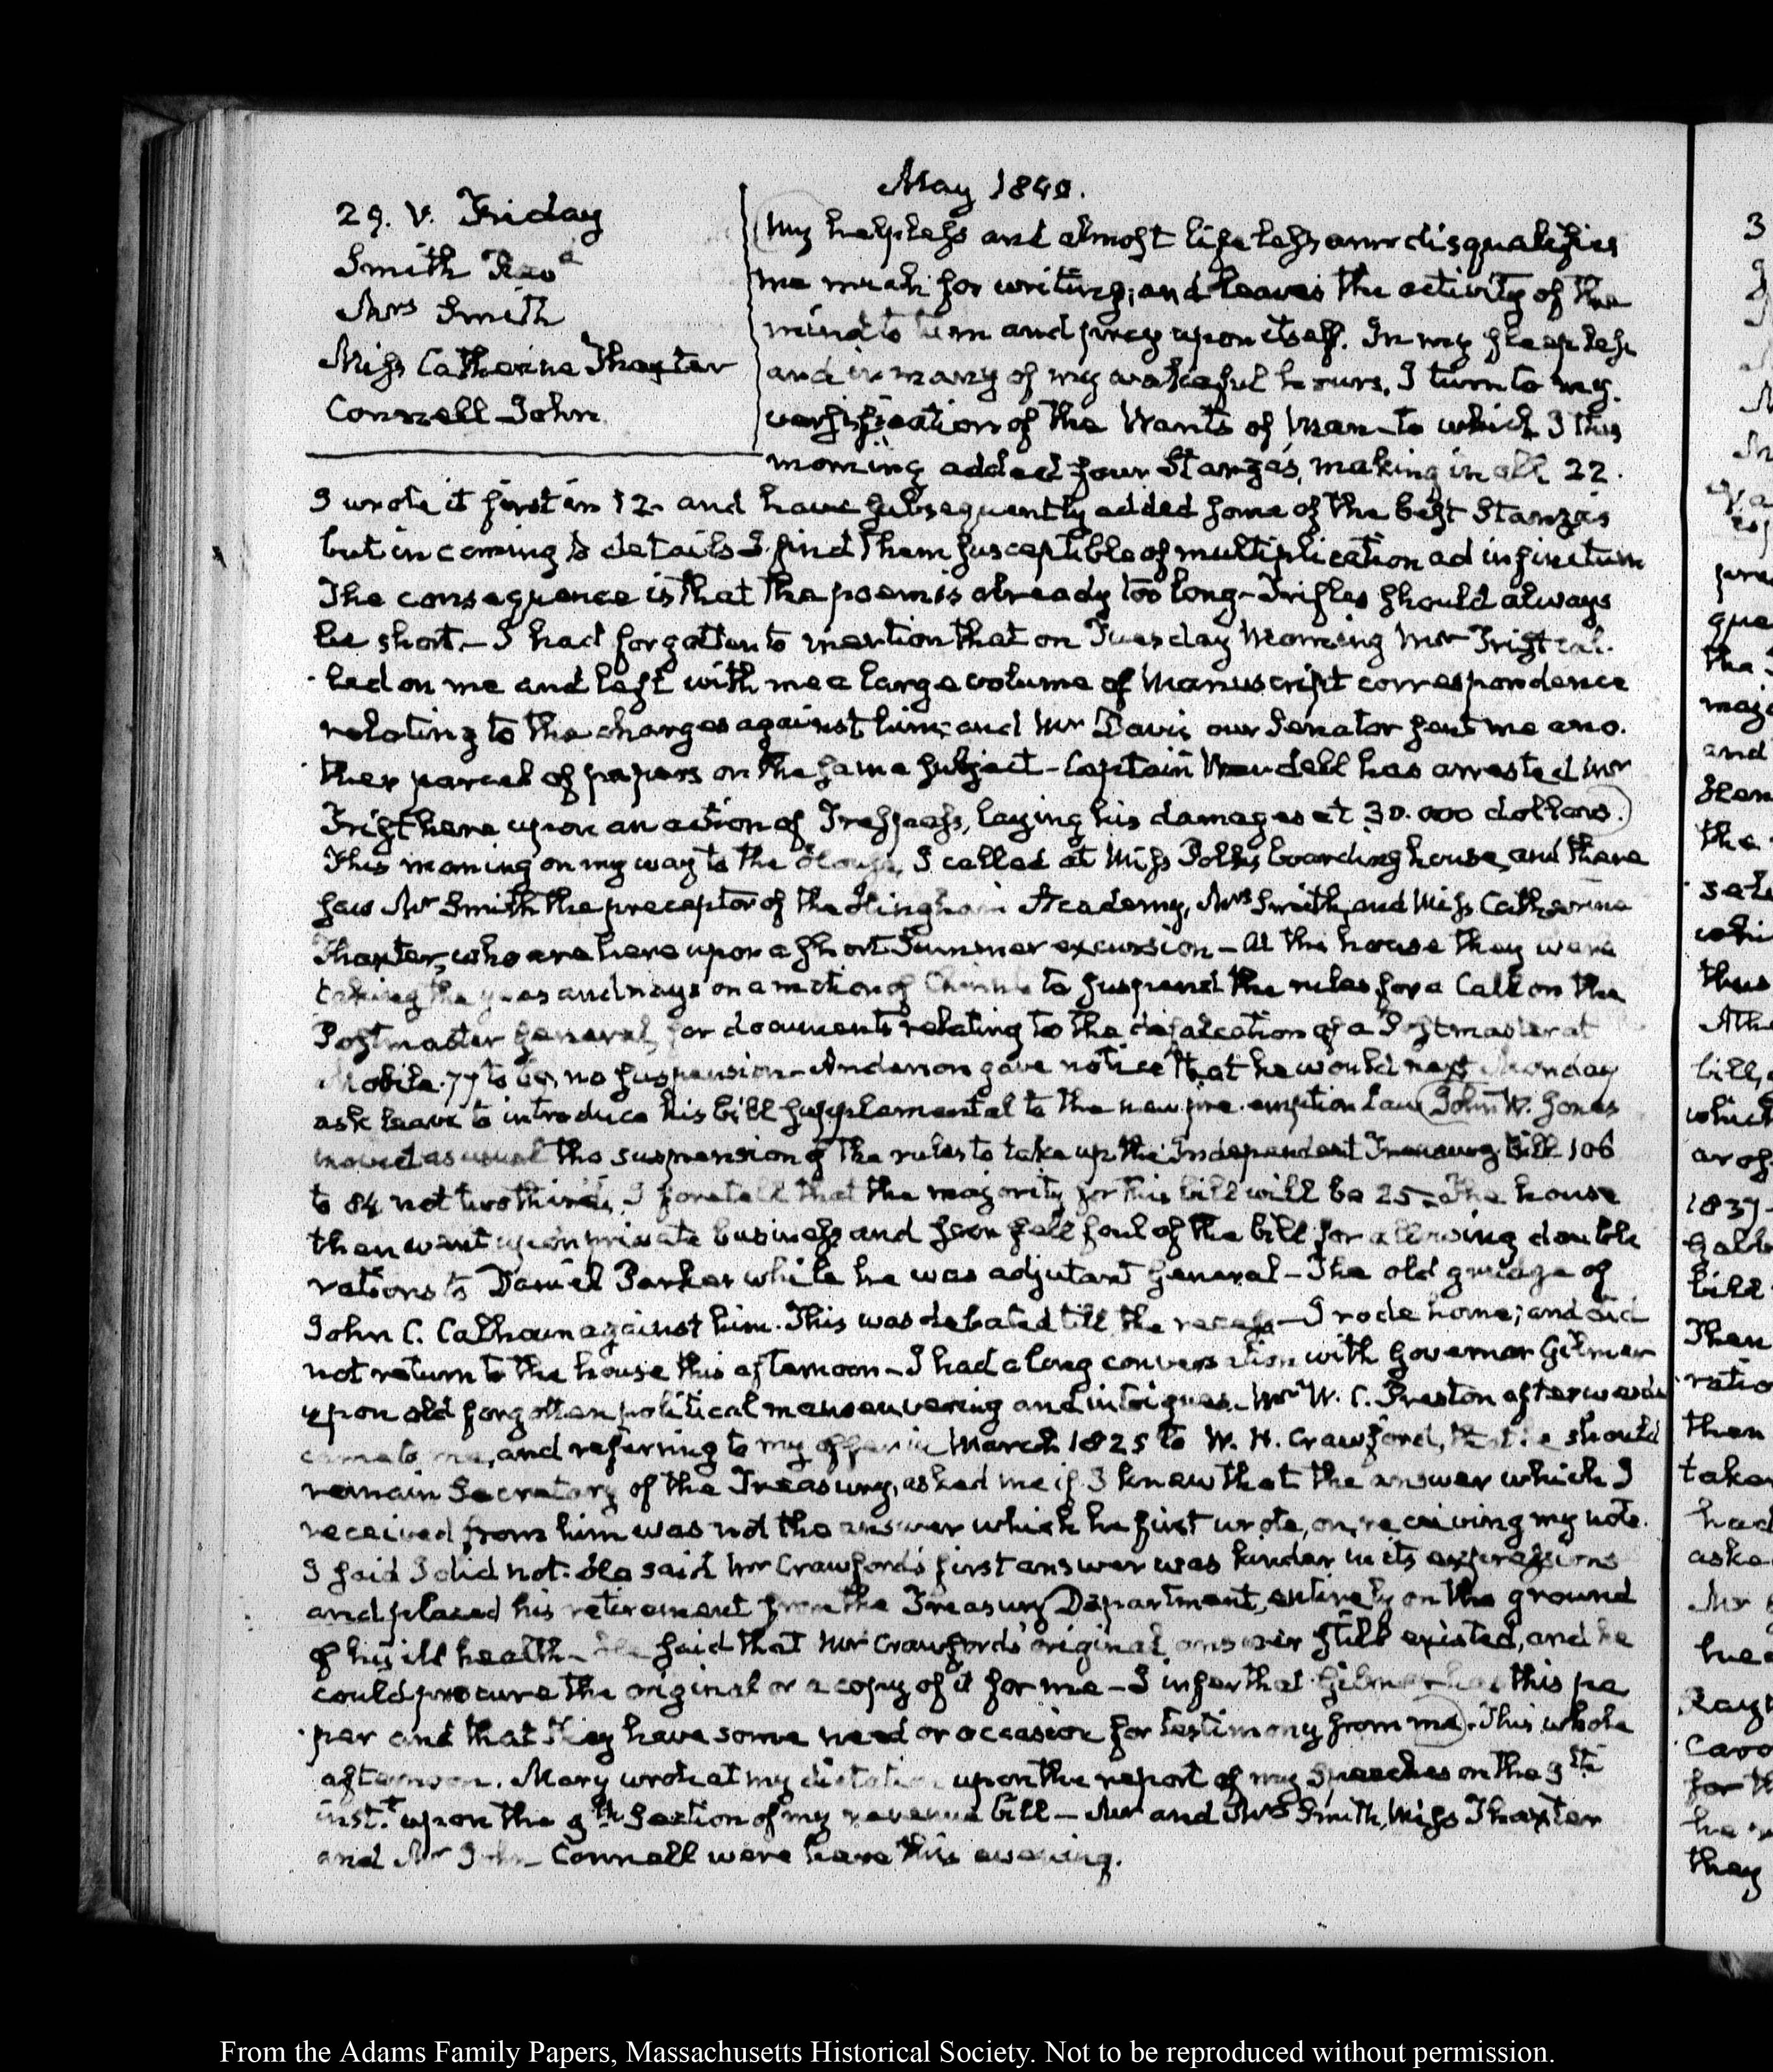 May 1840.
29. V. Friday
Smith
Mrs Smith
Miss Catherine Thaxter
Connell John
My helpless and almost lifeless arm disqualifies
me much for writing; and leaves the activity of the
mind to turn and prey upon itself. In my sleepless
and in many of my wakeful hours, I turn to my
versification of the Wants of Man to which I this
morning added four Stanzas, making in all 22.
I wrote it first in 12 and have subsequently added some of the best Stanzas
but in coming to details I find them susceptible of multiplication ad infinitum
The consequence is that the poem is already too long - Trifles should always
be short. - I had forgotten to mention that on Tuesday Morning Mr Trist cal-
led on me and left with me a large volume of Manuscript correspondence
relating to the charges against him; and Mr Davis our Senator sent me ano-
ther parcel of papers on the same subject - Captain Wendell has arrested Mr
Trist here upon an action of Trespass, laying his damages at 30.000 dollars.
This morning on my way to the House, I called at Miss Polk's boarding house, and there
saw Mr Smith the preceptor of the Hingham Academy, Mrs Smith, and Miss Catherine
Thaxter, who are here upon a short Summer excursion - At the house they were
taking the yeas and nays on a motion of to suspend the rules for a Call on the
Postmaster General, for documents relating to the defalcation of a Postmaster at
Mobile. 77 to no suspension - Anderson gave notice that he would next Monday
ask leave to introduce his bill supplemental to the new pre-emption Law John W. Jones
moved as usual the suspension of the rules to take up the Independent Treasury Bill 106
to 84 not two thirds, I foretell that the majority for this bill will be 25 - The house
then went upon private business and soon fell foul of the bill for allowing double
rations to Daniel Parker while he was adjutant General - The old grudge of
John C. Calhoun against him. This was debated till the recess - I rode home; and did
not return to the house this afternoon - I had a long conversation with Governor Gilmer
upon old forgotten political manoeuvering and intrigues. Mr W. C. Preston afterwards
came to me, and referring to my offer in March 1825 to W. H. Crawford, that he should
remain Secretary of the Treasury, asked me if I knew that the answer which I
received from him was not the answer which he first wrote, on receiving my note.
I said I did not. He said Mr Crawford's first answer was kinder in its expressions
and placed his retirement from the Treasury Department, entirely on the ground
of his ill health - He said that Mr Crawford's original answer still existed, and he
could procure the original or a copy of it for me - I infer that Gilmer has this pa
per and that they have some need or occasion for testimony from me. This whole
afternoon. Mary wrote at my dictation upon the report of my Speeches on the
inst.t upon the Section of my revenue bill - Mr and Mrs Smith, Miss Thaxter
and Mr John Connell were here this evening.
From the Adams Family Papers, Massachusetts Historical Society. Not to be reproduced without permission.